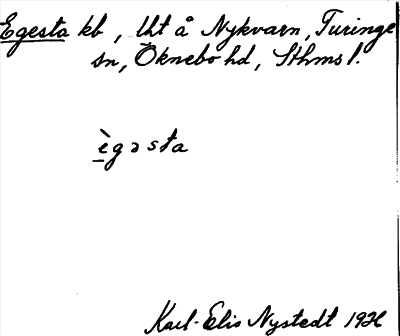 Egesta kb, lht å Nykvarn, Turinge
sn, Öknebo hd, Sthms l.
ègəsta
Karl-Elis Nystedt